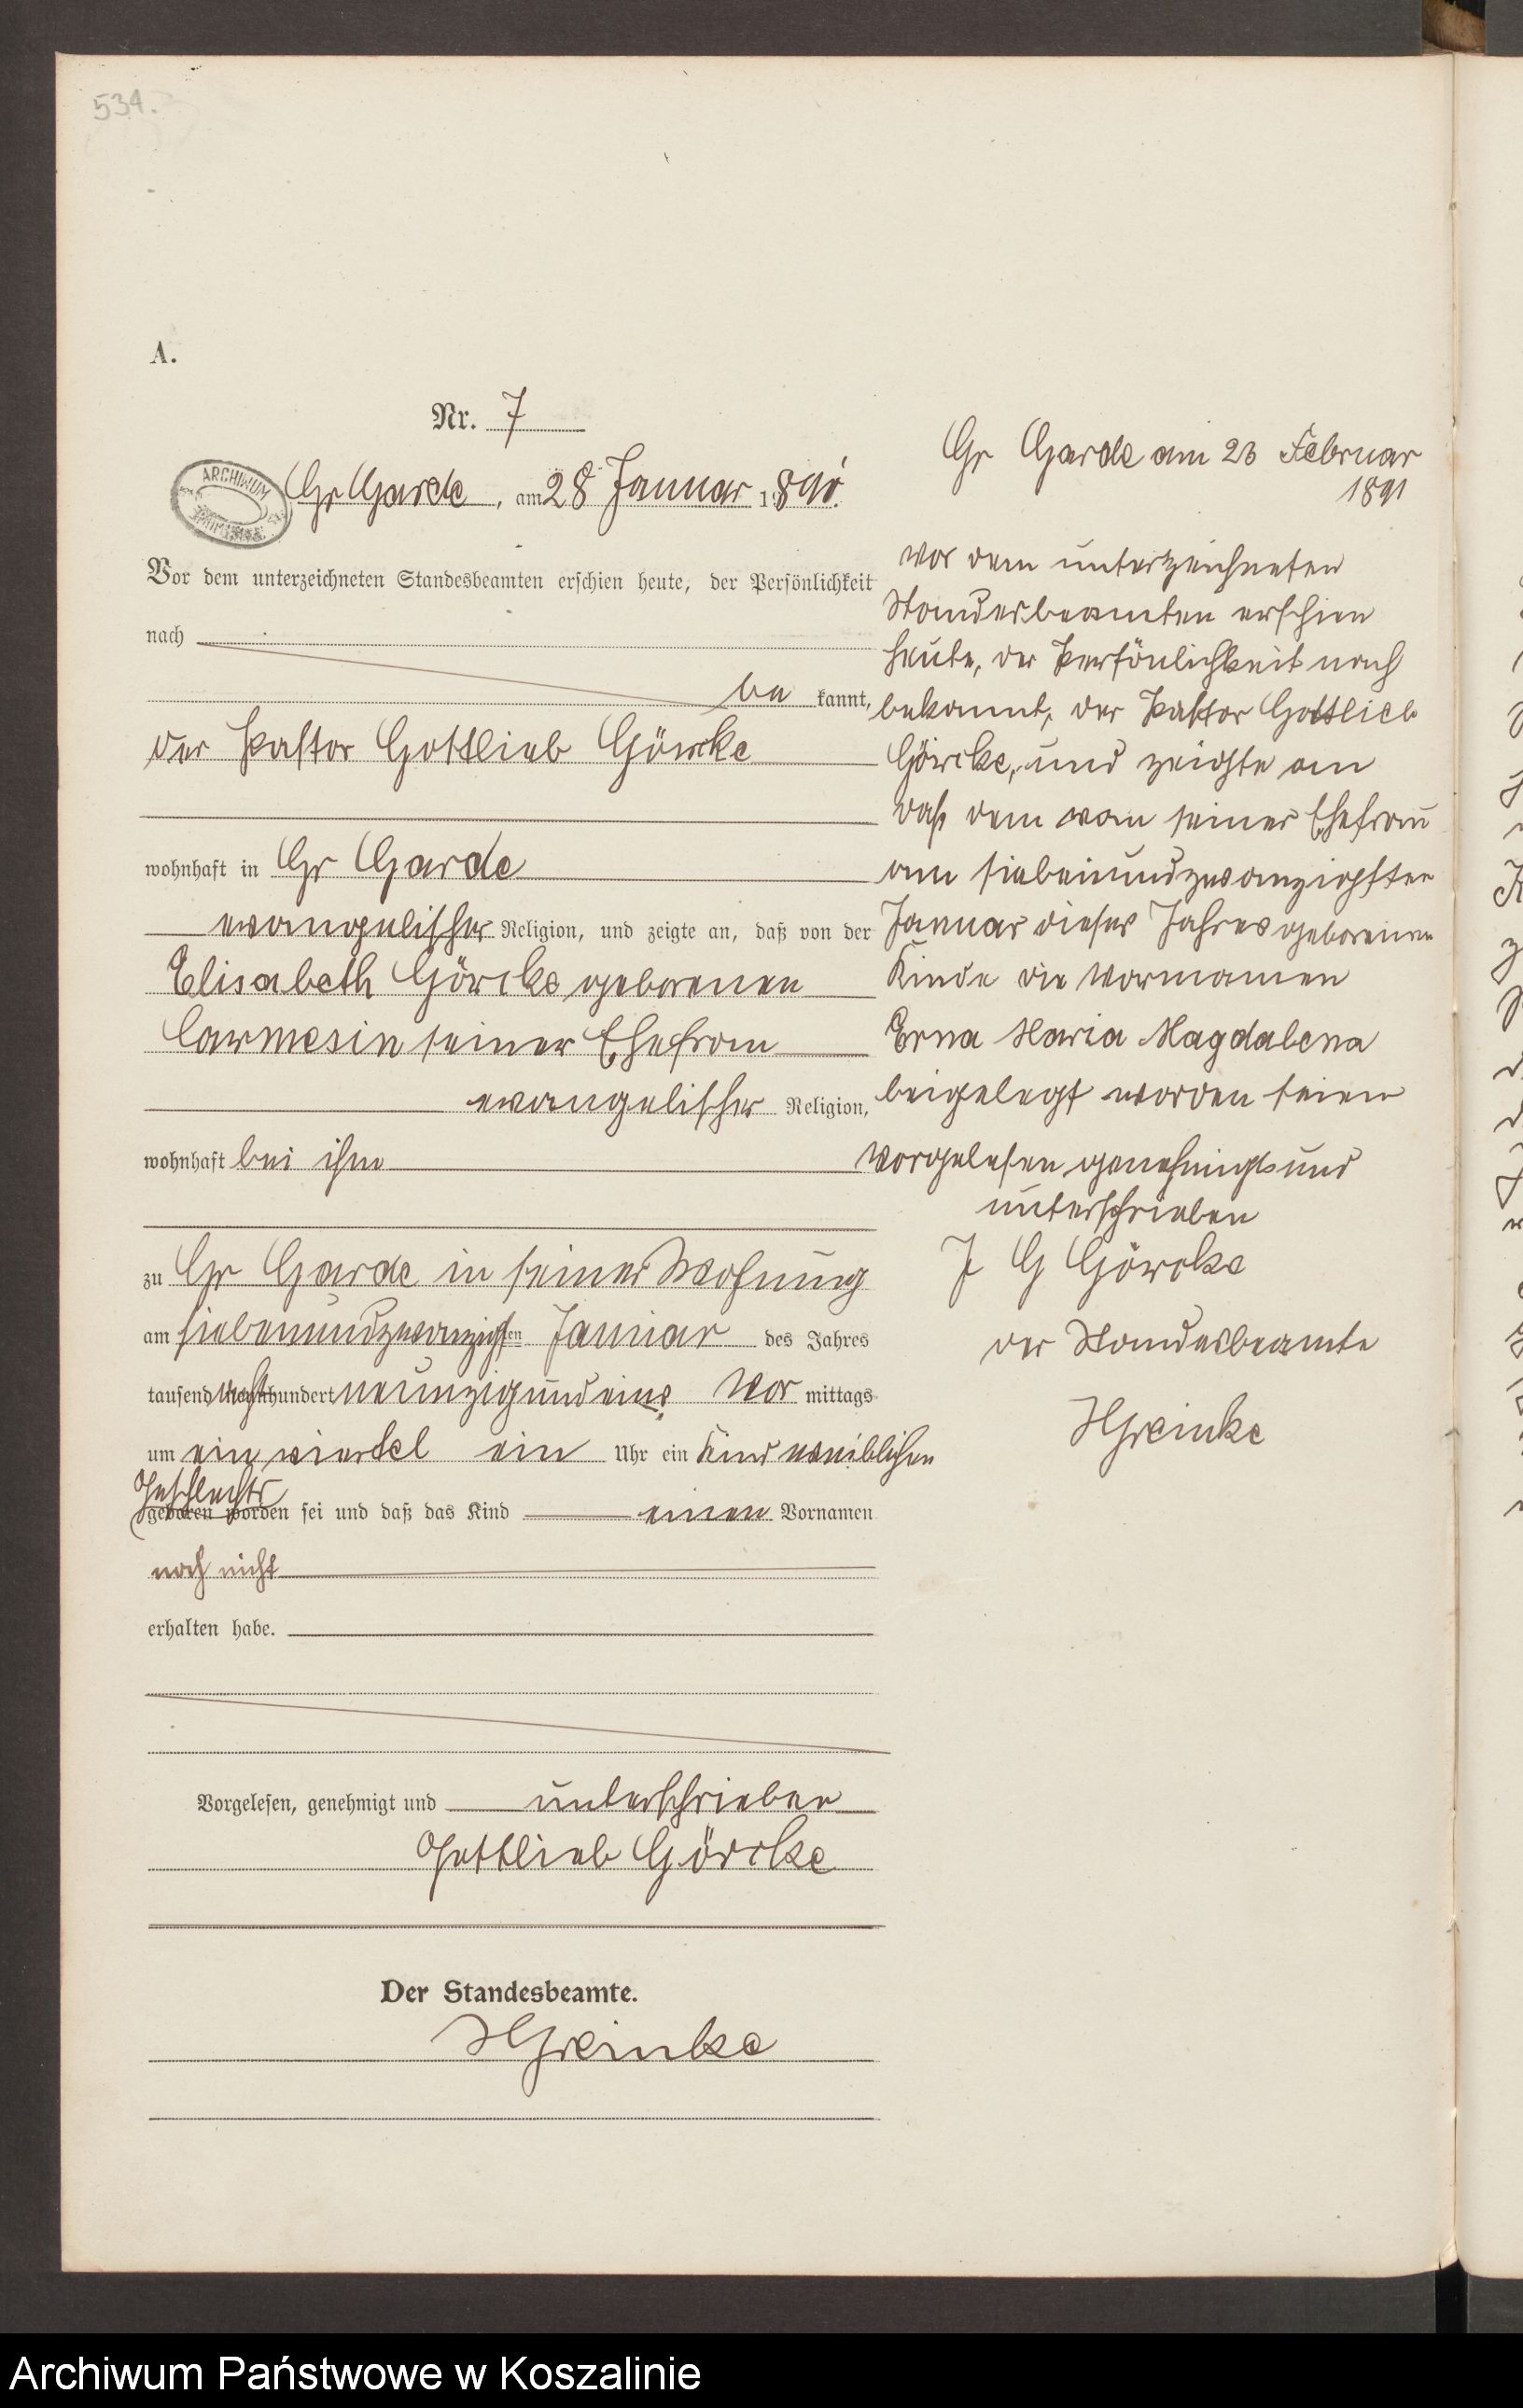 534.
A.
Nr. 7
ARCHIWUM
Gr Garde, am 28 Januar 1891.
Vor dem unterzeichneten Standesbeamten erschien heute, der Persönlichkeit
nach
be kannt,
der Pastor Gottlieb Görcke
wohnhaft in Gr Garde
evangelischer Religion, und zeigte an, daß von der
Elisabeth Görcke geborenen
Carmesin seiner Ehefrau
evangelischer Religion,
wohnhaft bei ihm
zu Gr Garde in seiner Wohnung
am siebenundzwanzigsten Januar des Jahres
tausend acht hundert neunzig und eins Vor mittags
um ein viertel ein Uhr ein Kind weiblichen
Geschlechts
geboren worden sei und daß das Kind einen Vornamen
noch nicht
erhalten habe.
Vorgelesen, genehmigt und unterschrieben
Gottlieb Görcke
Der Standesbeamte.
HGreinke
Gr Garde am 23 Februar
1891
Vor dem unterzeichneten
Standesbeamten erschien
heute, der Persönlichkeit nach
bekannt, der Pastor Gottlieb
Görcke, und zeigte an
daß dem von seiner Ehefrau
am siebenundzwanzigsten
Januar dieses Jahres geborenen
Kinde die Vornamen
Erna Maria Magdalena
beigelegt worden seien
Vorgelesen genehmigt und
unterschrieben
J G Görcke
der Standesbeamte
HGreinke
Archiwum Państwowe w Koszalinie